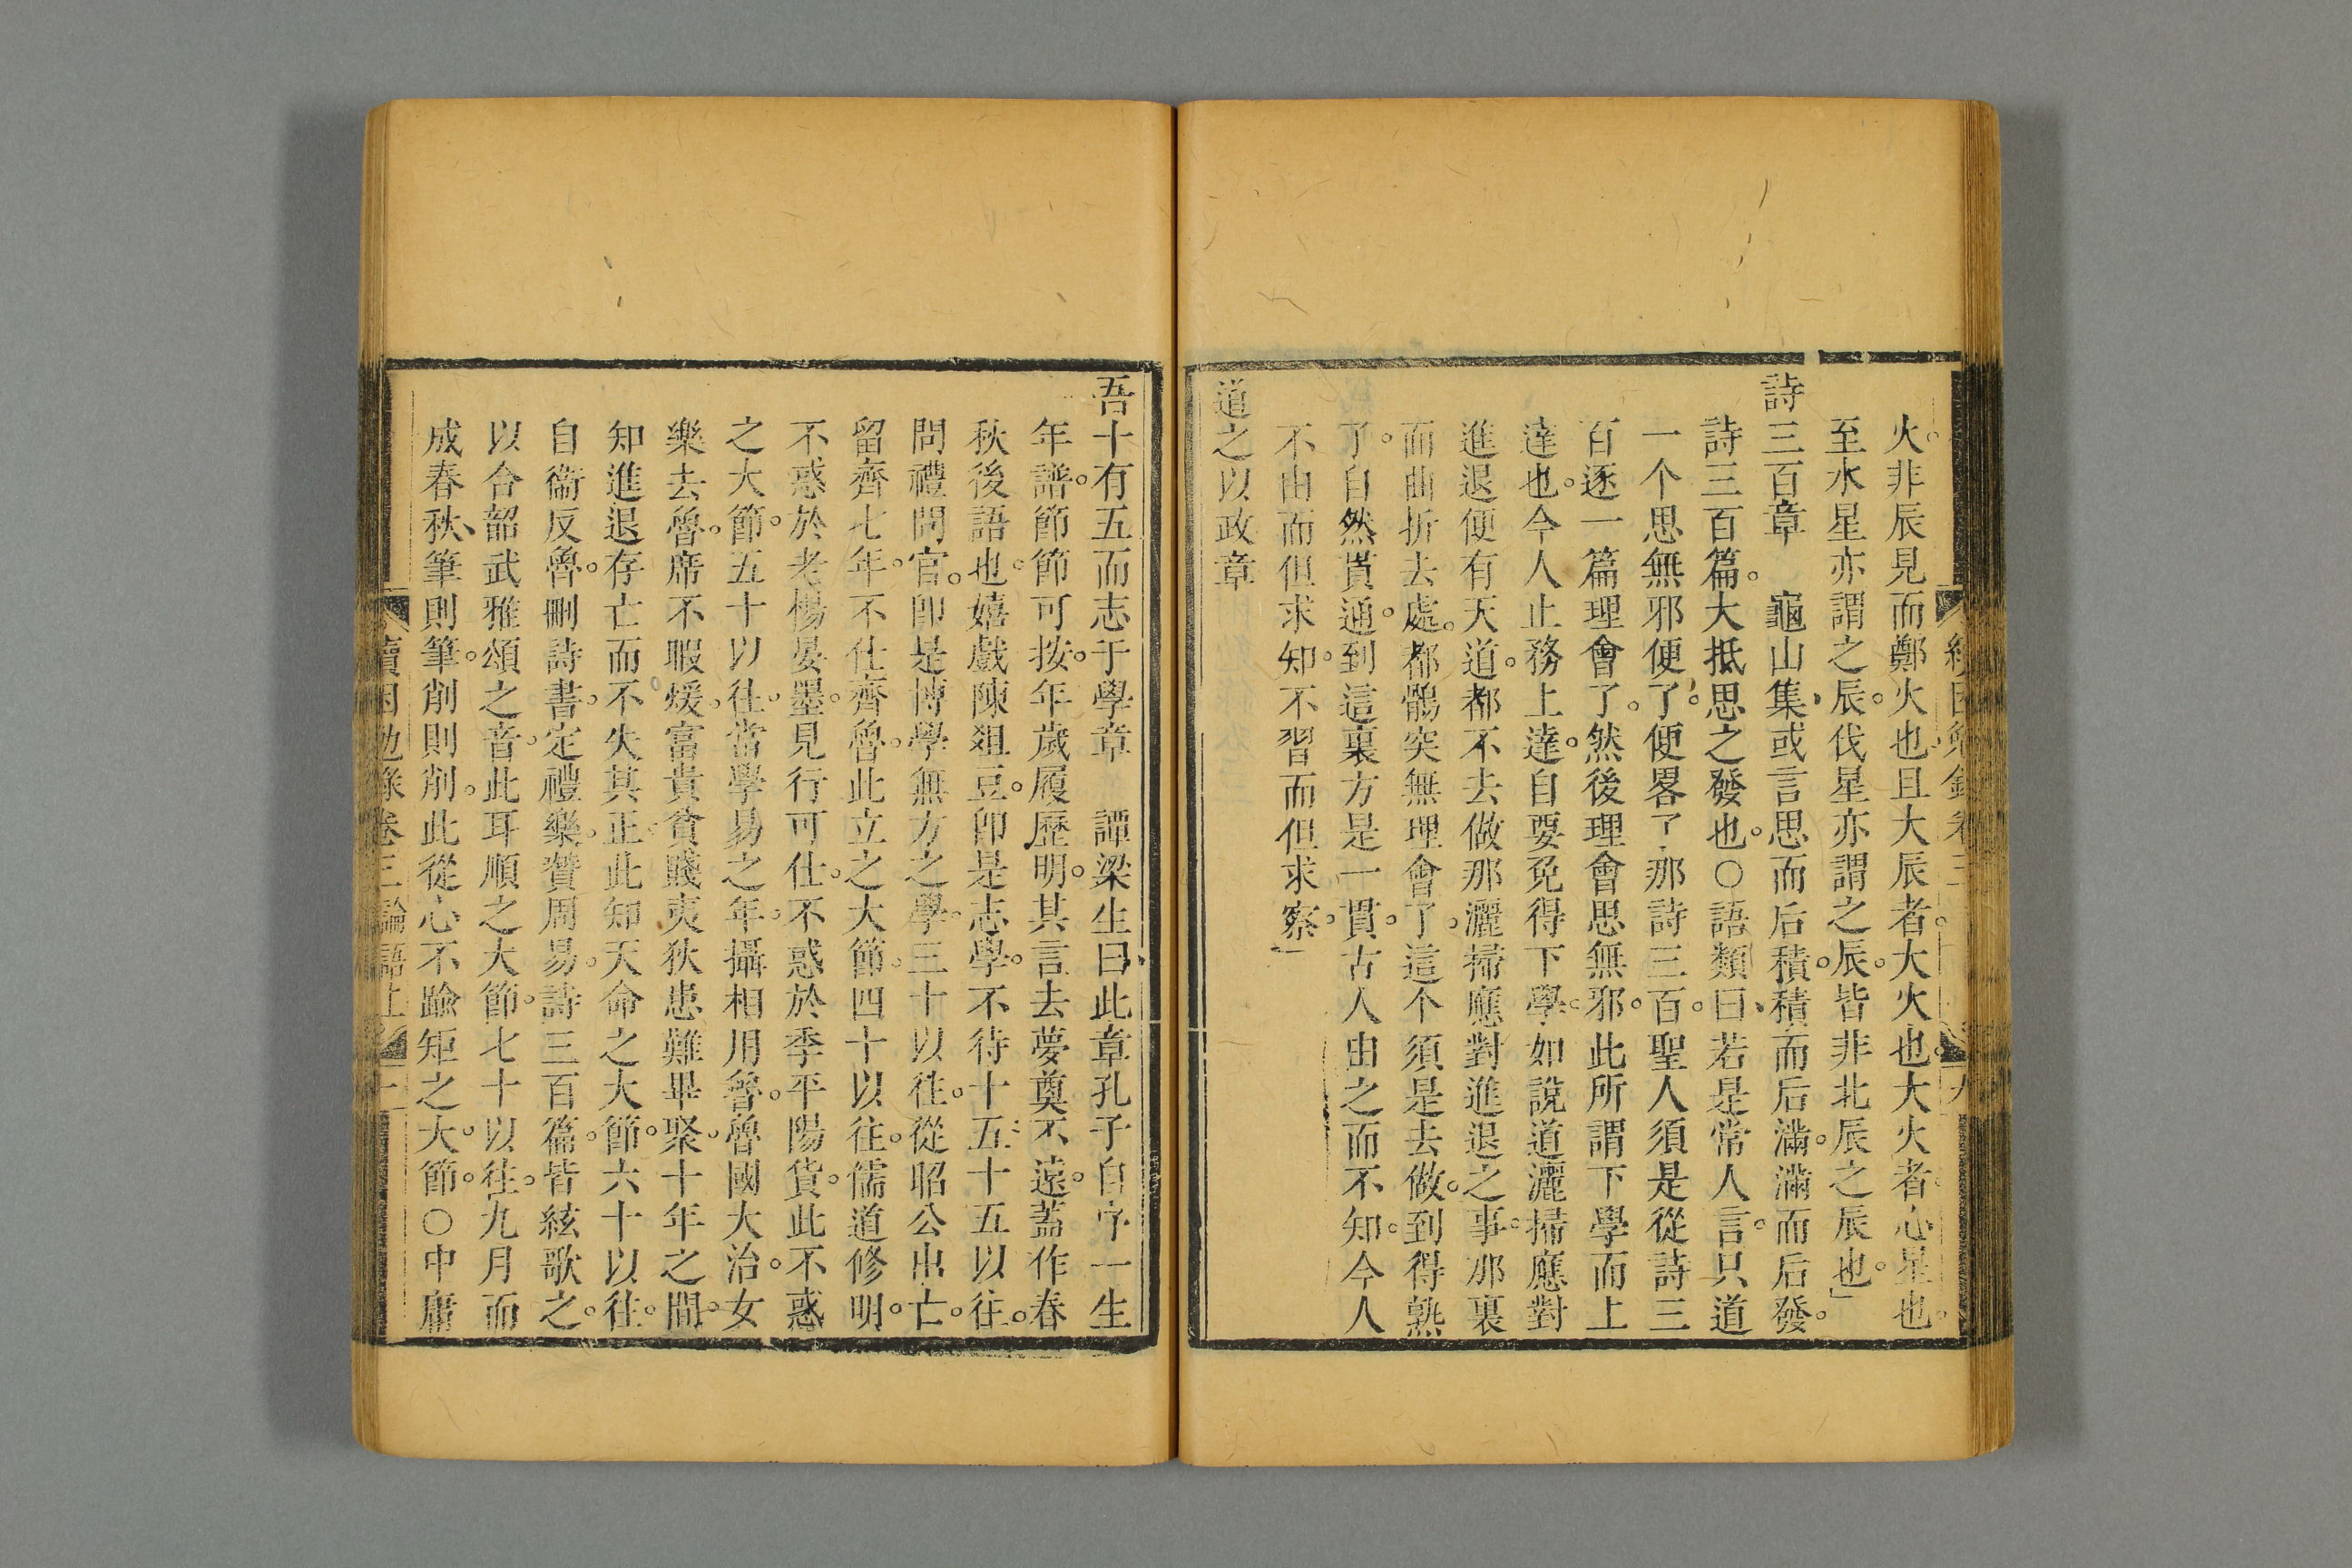 火。非辰見而鄭火也。且大辰者。大火也。大火者。心星也。
至水星亦謂之辰。伐星亦謂之辰。皆非北辰之辰也。」
詩三百章　龜山集、或言思而后積。積而后滿。滿而后發。
詩三百篇。大抵思之發也。○語類曰、若是常人言。只道
一个思無邪便了。便畧了那詩三百。聖人須是從詩三
百逐一篇理會了。然後理會思無邪。此所謂下學而上
達也。今人止務上達。自要免得下學。如說道灑掃應對
進退便有天道。都不去做那灑掃應對進退之事。那裏
而曲折去處。都鶻突無理會了。這个須是去做。到得熟
了。自然貫通。到這裏方是一貫。古人由之而不知。今人
不由而但求知。不習而但求察。」
道之以政章
吾十有五而志于學章　譚梁生曰、此章孔子自序一生
年譜。節節可按。年歲履歷明。其言去夢奠不遠。蓋作春
秋後語也。嬉戲陳俎豆。卽是志學。不待十五。十五以往。
問禮問官。卽是博學無方之學。三十以往。從昭公出亡。
留齊七年。不仕齊魯。此立之大節。四十以往。儒道修明。
不惑於老楊晏墨。見行可仕。不惑於季平陽貨。此不惑
之大節。五十以往。當學易之年。攝相用魯。魯國大治。女
樂去魯。席不暇煖。富貴貧賤夷狄患難畢聚十年之間。
知進退存亡而不失其正。此知天命之大節。六十以往。
自衞反魯。刪詩書。定禮樂。贊周易。詩三百篇。皆絃歌之。
以合韶武雅頌之音。此耳順之大節。七十以往。九月而
成春秋、筆則筆。削則削。此從心不踰矩之大節。○中庸
續困勉錄卷三論語上